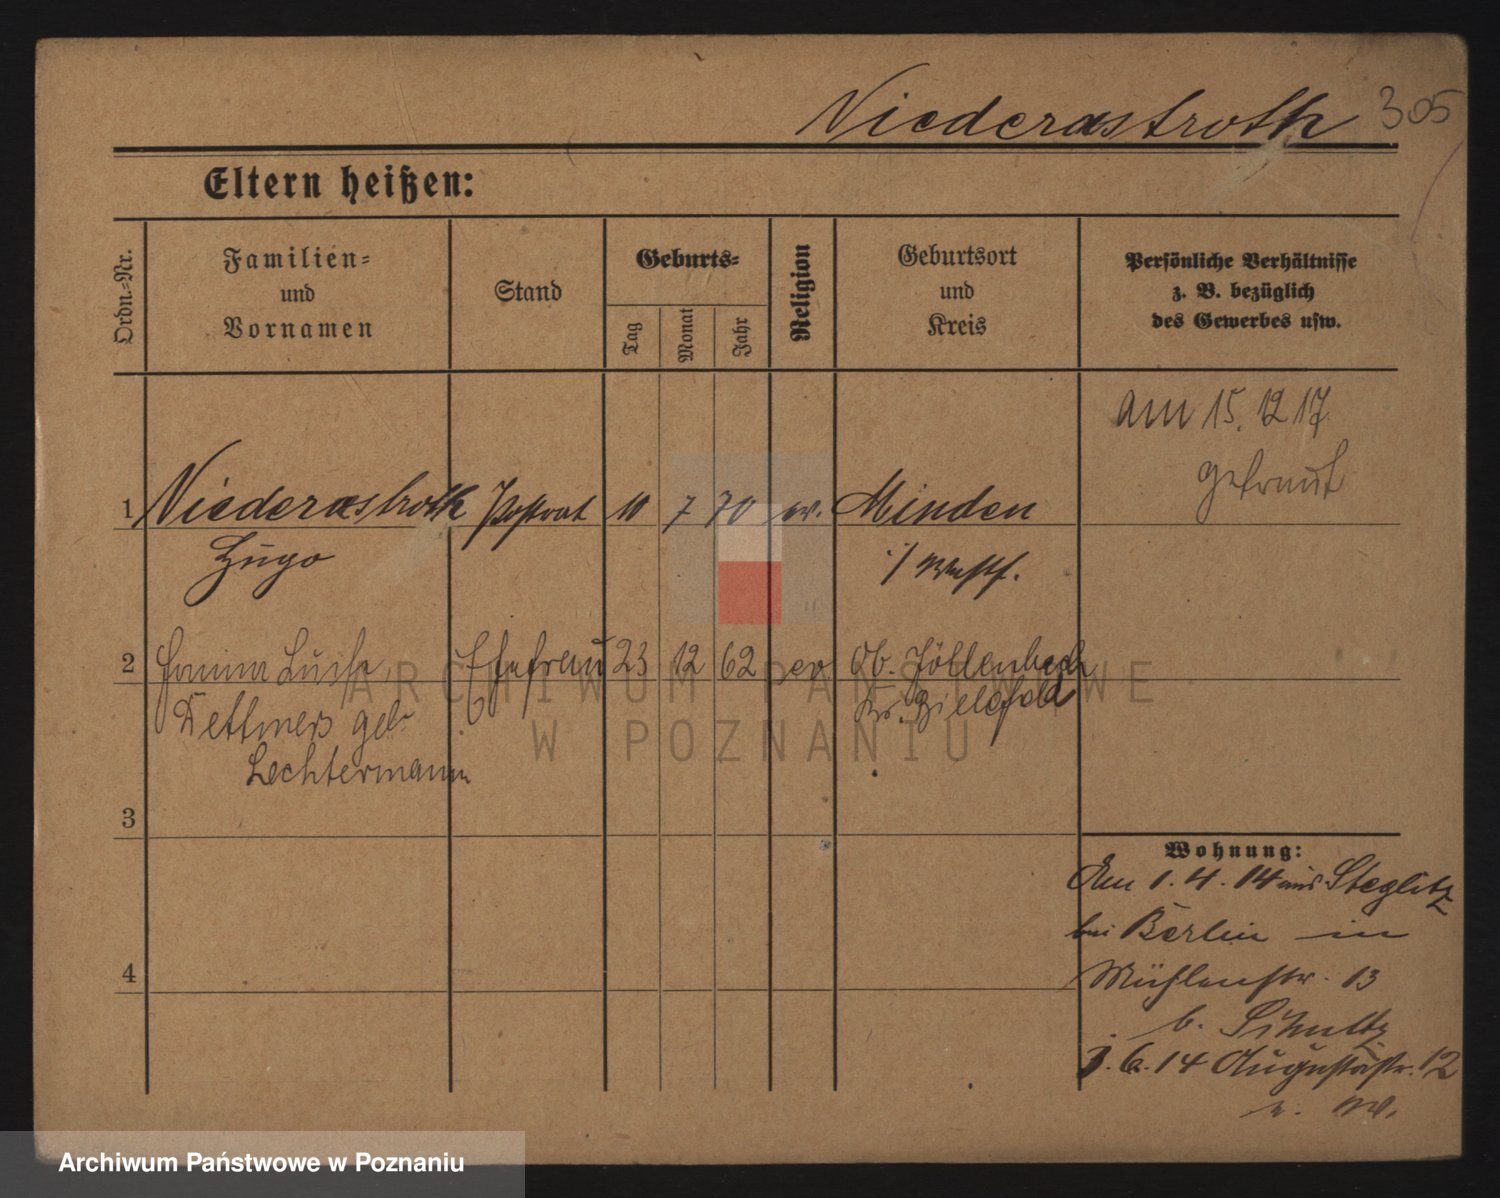 Niederastroth 305
Eltern heißen:
Ordn.-Nr.
Familien-
und
Vornamen
Stand
Geburts-
Tag
Monat
Jahr
Religion
Geburtsort
und
Kreis
Persönliche Verhältnisse
z. B. bezüglich
des Gewerbes usw.
am 15. 12 17.
getraut
1 Niederastroth Postrat 10 7 70 ev. Minden
Hugo i/Westf.
2 Luise Ehefrau 23 12 62 ev Ob. Jöllenbeck
Dettmers geb. Kr. Bielefeld
Lechtermann
3
4
Wohnung:
Am 1. 4. 14 aus Steglitz
bei Berlin in
Mühlenstr. 13
b. Schultz
3. 6. 14 Augustastr. 12
ARCHIWUM PAŃSTWOWE
W POZNANIU
Archiwum Państwowe w Poznaniu